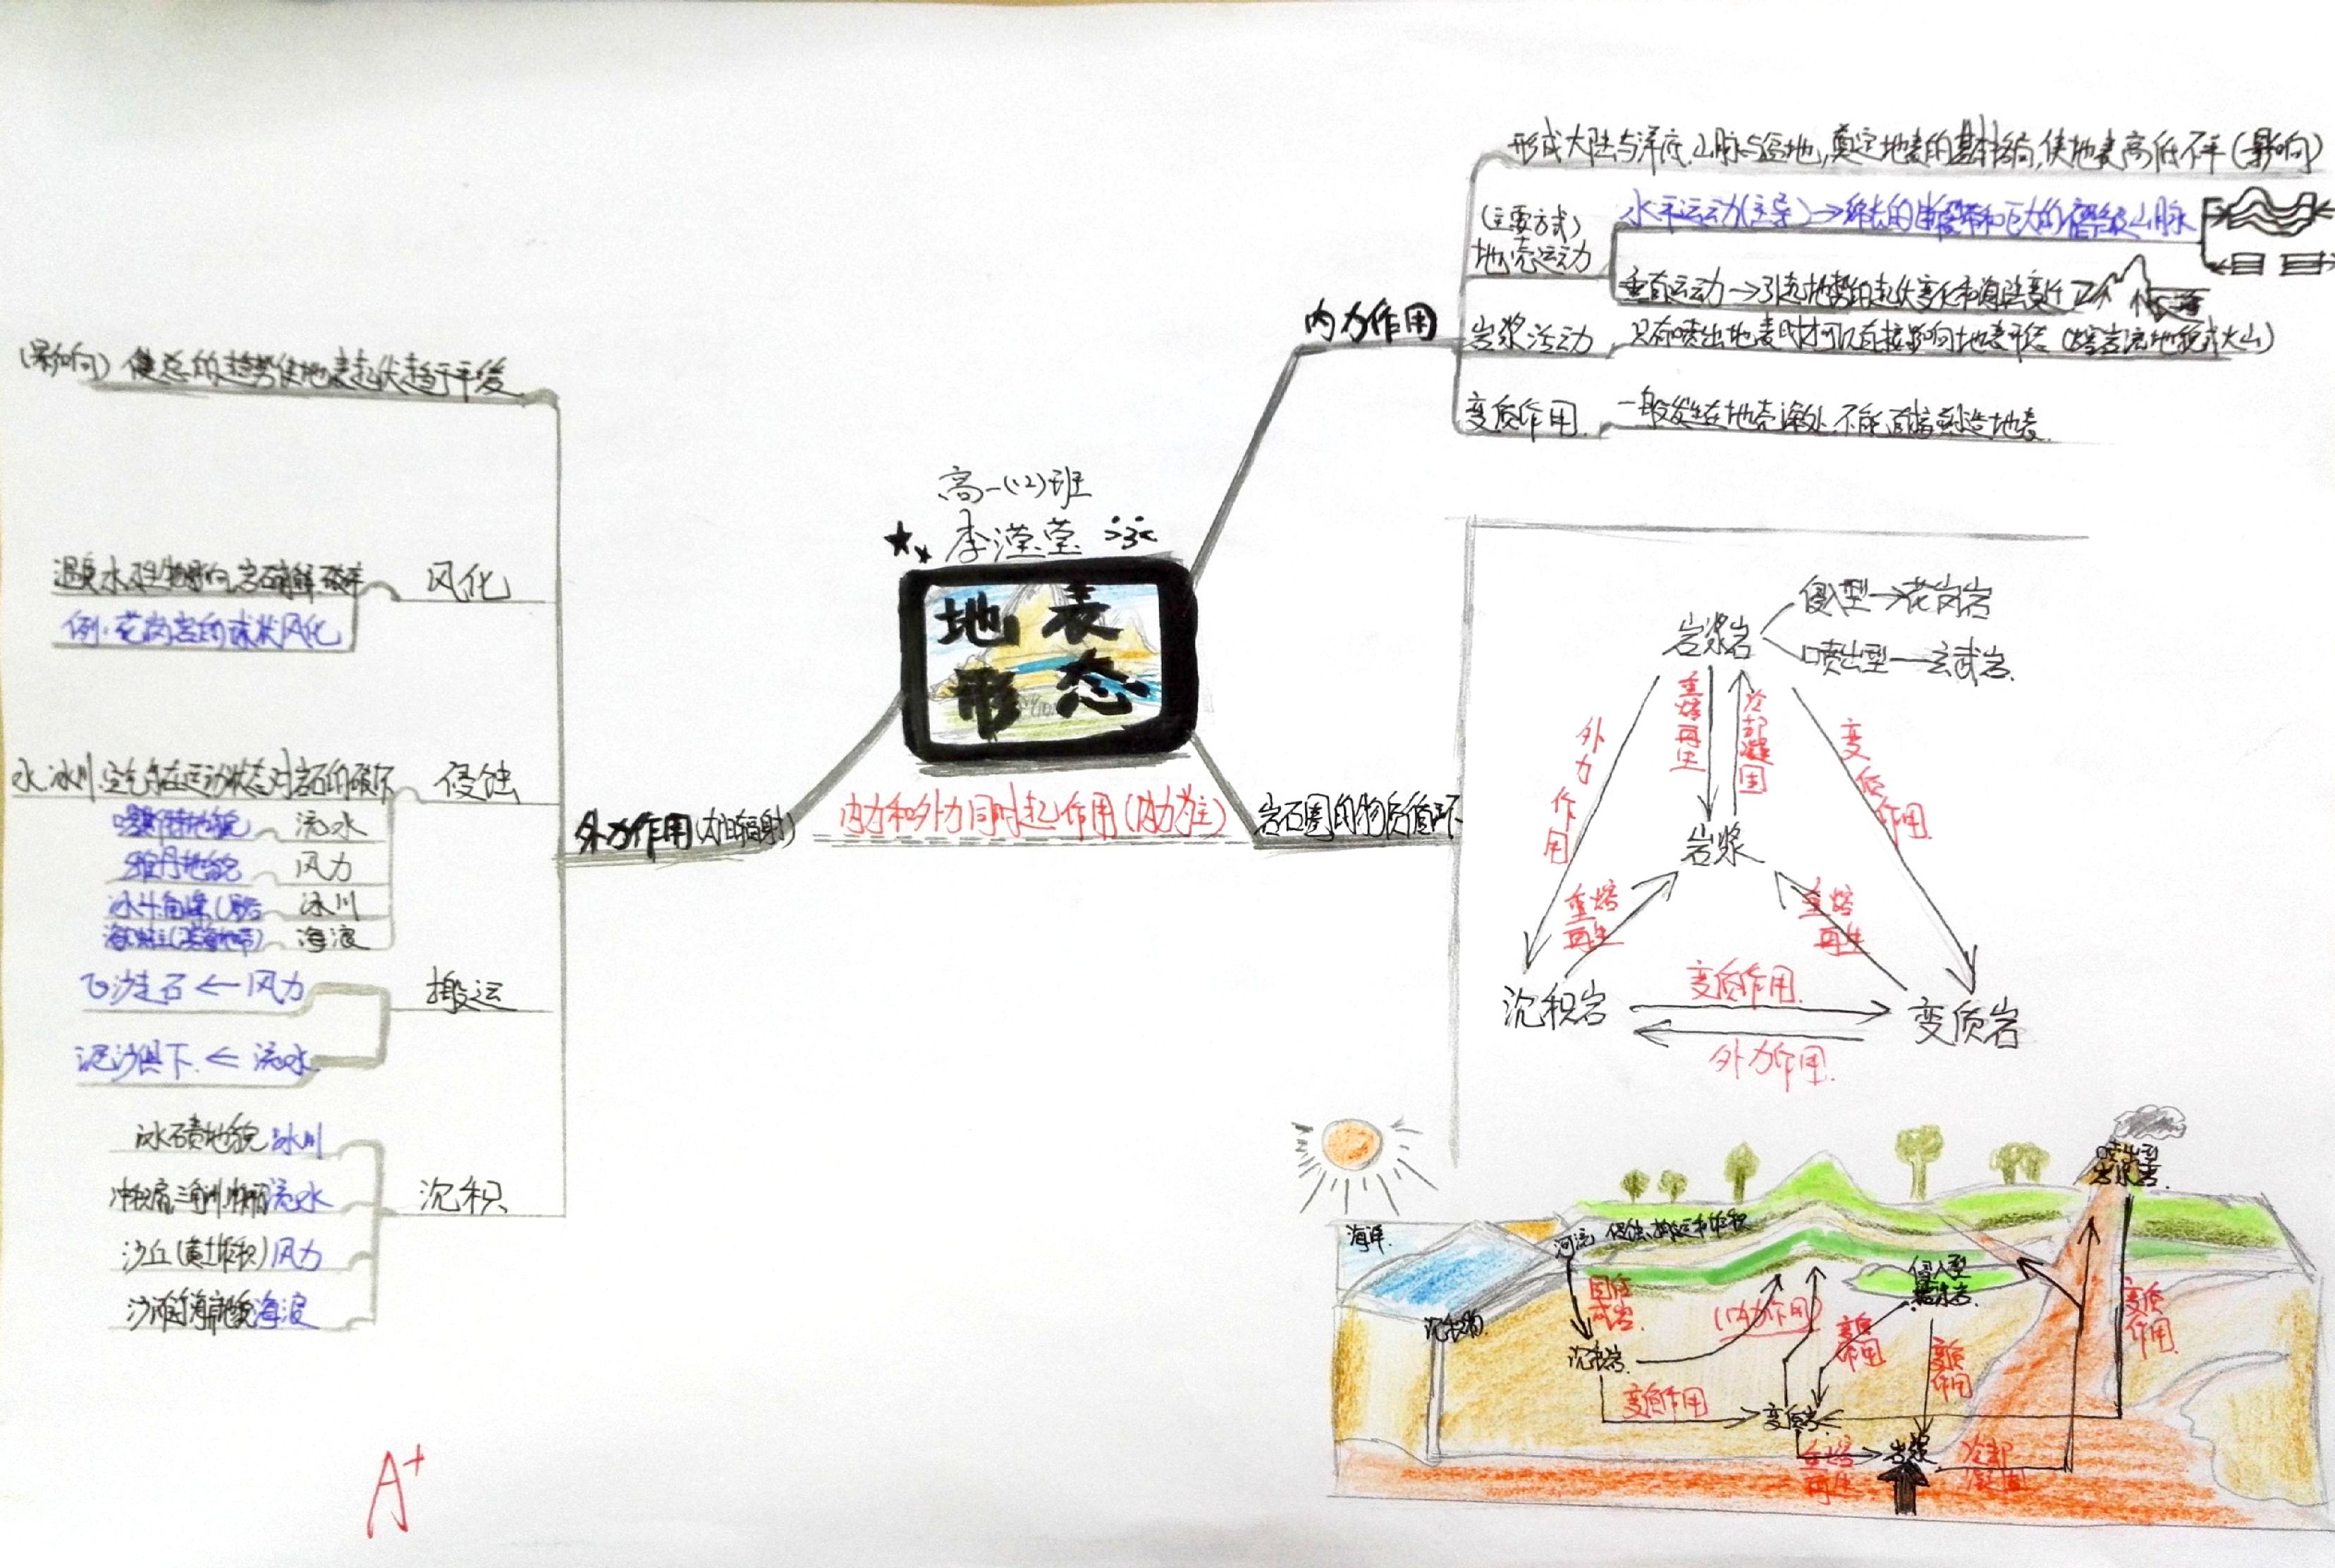 高一(12)班
李滢莹
地表
形态
内力和外力同时起作用(内力为主)
内力作用
形成大陆与洋底、山脉与盆地,奠定地表的基本格局,使地表高低不平(影响)
(主要方式)
地壳运动
水平运动(主导)→绵长的断裂带和巨大的褶皱山脉
垂直运动→引起地势的起伏变化和海陆变迁
岩浆活动
只有喷出地表时才可以直接影响地表形态(熔岩流地貌或火山)
变质作用
一般发生在地壳深处,不能直接塑造地表
岩石圈的物质循环
岩浆岩
侵入型→花岗岩
喷出型—玄武岩
外力作用
重熔再生
冷却凝固
变质作用
岩浆
重熔再生
重熔再生
沉积岩
变质作用
外力作用
变质岩
海洋
河流 侵蚀、搬运和堆积
沉积物
固结成岩
沉积岩
(内力作用)
侵入型
岩浆岩
喷出型
岩浆岩
变质作用
变质作用
变质作用
变质作用
变质岩
重熔再生
岩浆
冷却凝固
外力作用(太阳辐射)
(影响)使总的趋势使地表起伏趋于平缓
风化
例:花岗岩的球状风化
侵蚀
水、冰川、空气等在运动状态对岩石的破坏
流水
喀斯特地貌
风力
雅丹地貌
冰川
冰斗、角峰
海浪
搬运
飞沙走石←风力
泥沙俱下←流水
沉积
冰碛地貌 冰川
流水
沙丘(黄土堆积)风力
海浪
A+